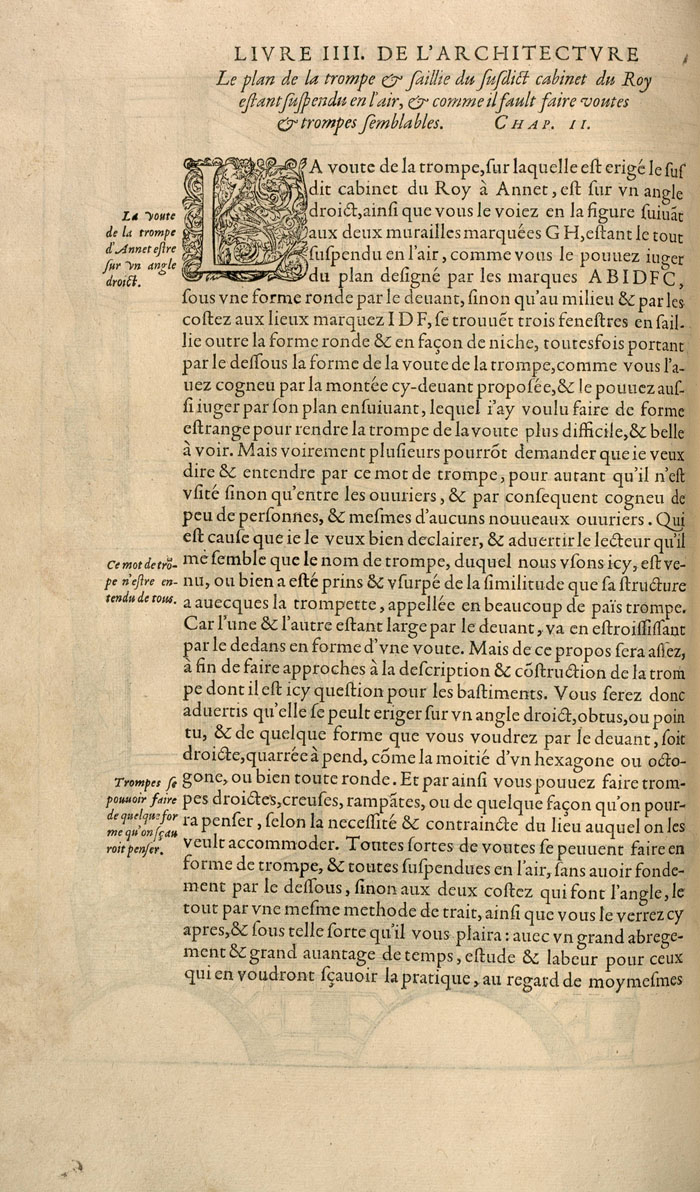 LIVRE IIII. DE L'ARCHITECTVRE
Le plan de la trompe & ſaillie du ſuſdict cabinet du Roy
eſtant ſuſpendu en l'air, & comme il fault faire voutes
& trompes ſemblables. CHAP. II.
LA voute de la trompe, ſur laquelle eſt erigé le ſuſ
dit cabinet du Roy à Annet, eſt ſur vn angle
droict, ainſi que vous le voiez en la figure ſuiuãt
aux deux murailles marquées G H, eſtant le tout
ſuſpendu en l'air, comme vous le pouuez iuger
du plan deſigné par les marques A B I D F C,
ſous vne forme ronde par le deuant, ſinon qu'au milieu & par les
coſtez aux lieux marquez I D F, ſe trouuẽt trois feneſtres en ſail-
lie outre la forme ronde & en façon de niche, toutesfois portant
par le deſſous la forme de la voute de la trompe, comme vous l'a-
uez cogneu par la montée cy-deuant propoſée, & le pouuez auſ-
ſi iuger par ſon plan enſuiuant, lequel i'ay voulu faire de forme
eſtrange pour rendre la trompe de la voute plus difficile, & belle
à voir. Mais voirement pluſieurs pourrõt demander que ie veux
dire & entendre par ce mot de trompe, pour autant qu'il n'eſt
vſité ſinon qu'entre les ouuriers, & par conſequent cogneu de
peu de perſonnes, & meſmes d'aucuns nouueaux ouuriers. Qui
eſt cauſe que ie le veux bien declairer, & aduertir le lecteur qu'il
me ſemble que le nom de trompe, duquel nous vſons icy, eſt ve-
nu, ou bien a eſté prins & vſurpé de la ſimilitude que ſa ſtructure
a auecques la trompette, appellée en beaucoup de païs trompe.
Car l'une & l'autre eſtant large par le deuant, va en eſtroiſſiſſant
par le dedans en forme d'vne voute. Mais de ce propos ſera aſſez,
à fin de faire approches à la deſcription & cõſtruction de la trom
pe dont il eſt icy queſtion pour les baſtiments. Vous ſerez donc
aduertis qu'elle ſe peult eriger ſur vn angle droict, obtus, ou poin
tu, & de quelque forme que vous voudrez par le deuant, ſoit
droicte, quarrée à pend, cõme la moitié d'vn hexagone ou octo-
gone, ou bien toute ronde. Et par ainſi vous pouuez faire trom-
pes droictes, creuſes, rampãtes, ou de quelque façon qu'on pour-
ra penſer, ſelon la neceſſité & contraincte du lieu auquel on les
veult accommoder. Toutes ſortes de voutes ſe peuuent faire en
forme de trompe, & toutes ſuſpendues en l'air, ſans auoir fonde-
ment par le deſſous, ſinon aux deux coſtez qui font l'angle, le
tout par vne meſme methode de trait, ainſi que vous le verrez cy
apres, & ſous telle ſorte qu'il vous plaira: auec vn grand abrege-
ment & grand auantage de temps, eſtude & labeur pour ceux
qui en voudront ſçauoir la pratique, au regard de moymeſmes
La voute
de la trompe
d'Annet eſtre
ſur vn angle
droict.
Ce mot de trõ-
pe n'eſtre en-
tendu de tous.
Trompes ſe
pouuoir faire
de quelque for
me qu'on ſçau
roit penſer.